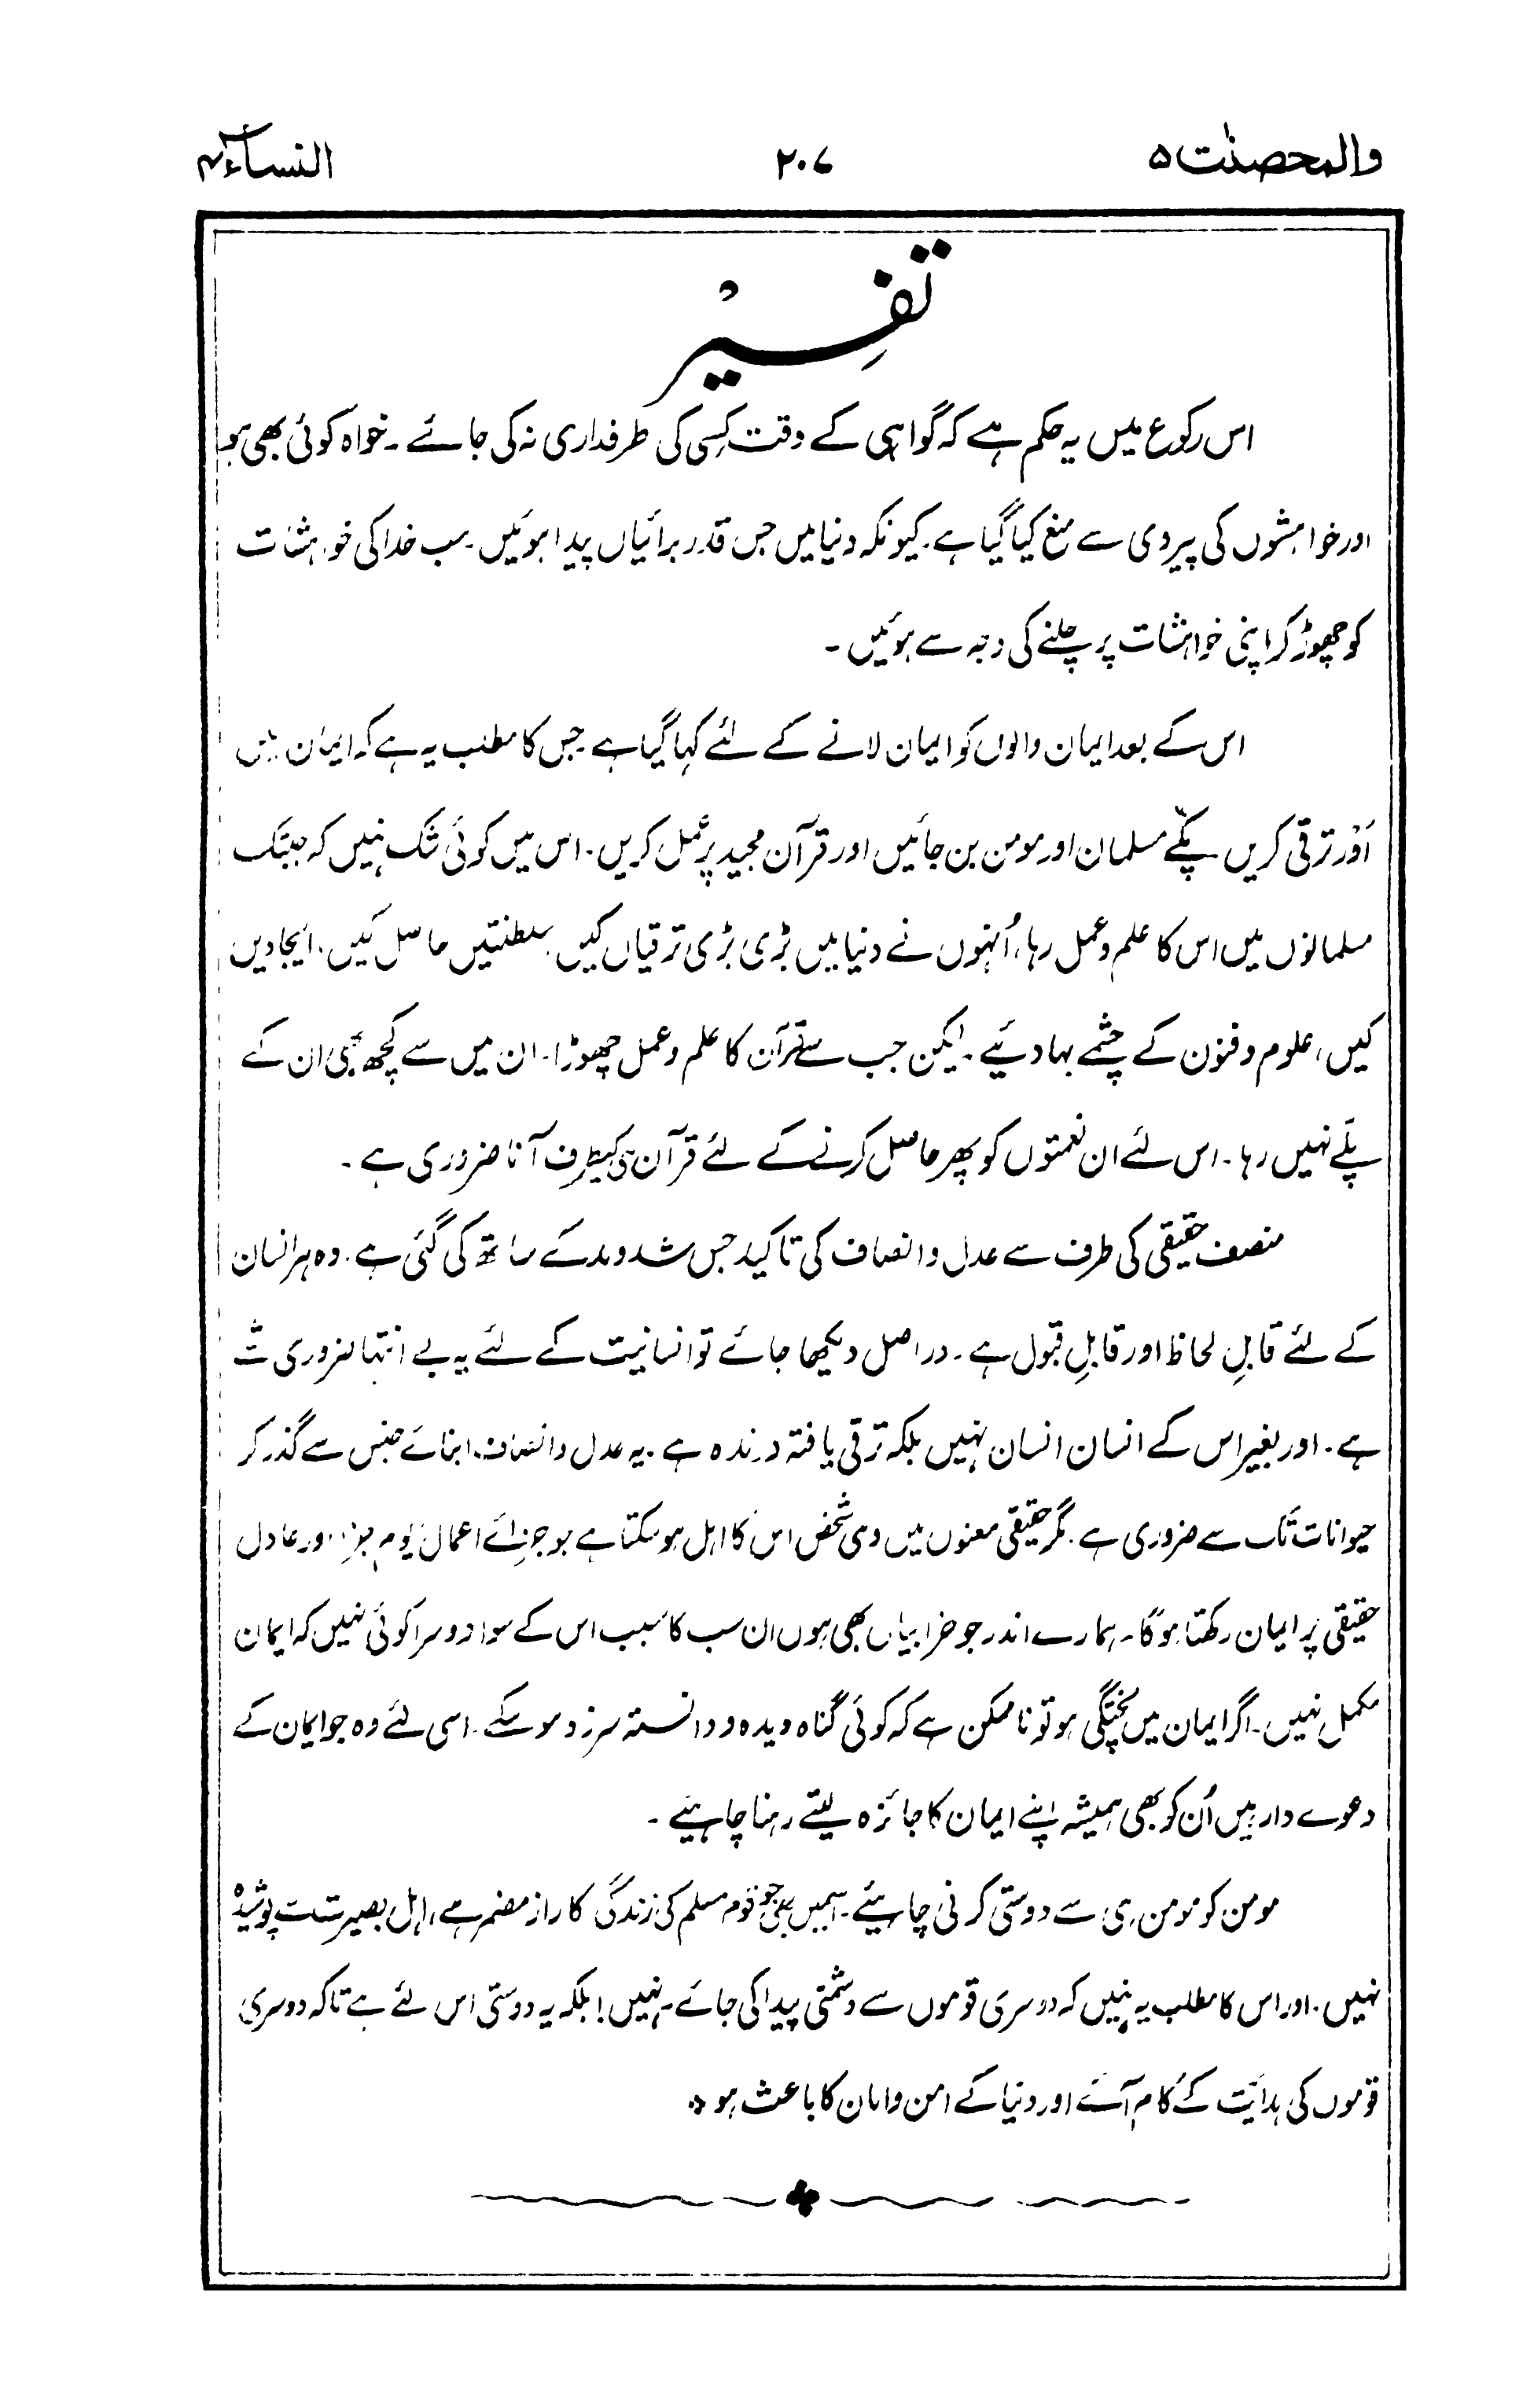 والمحصنٰت ۵
۲۰۷
النساء ۴
تفسیر
اس رکوع میں یہ حکم ہے کہ گواہی کے وقت کِسی کی طرفداری نہ کی جائے ۔ خواہ کوئی بھی ہو
اور خواہشوں کی پیروی سے منع کیا گیا ہے۔ کیونکہ دنیا میں جس قدر برائیاں پیدا ہوئیں۔ سب خدا کی خواہشات
کو چھوڑ کر اپنی خواہشات پر چلنے کی وجہ سے ہوئیں ۔
اس کے بعد ایمان والوں کو ایمان لانے کے لئے کہا گیا ہے جس کا مطلب یہ ہے کہ ایمان میں
اَوْر ترقی کریں پکّے مسلمان اور مومن بن جائیں اور قرآن مجید پر عمل کریں۔ اس میں کوئی شک نہیں کہ جبتک
مسلمانوں میں اس کا علم و عمل رہا، اُنہوں نے دنیا میں بڑی بڑی ترقیاں کیں۔ سلطنتیں حاصل کیں۔ ایجادیں
کیں، علوم و فنون کے چشمے بہا دئیے ۔ لیکن جب سے قرآن کا علم و عمل چھوڑا۔ ان میں سے کچھ بھی ان کے
پلّے نہیں رہا ۔ اس لئے ان نعمتوں کو پھر حاصل کرنے کے لئے قرآن ہی کیطرف آنا ضروری ہے ۔
منصف حقیقی کی طرف سے عدل و انصاف کی تاکید جس شد و مد کے ساتھ کی گئی ہے۔ وہ ہر انسان
کے لئے قابلِ لحاظ اور قابلِ قبول ہے ۔ در اصل دیکھا جائے تو انسانیت کے لئے یہ بے انتہا ضروری شے
ہے ۔ اور بغیر اس کے انسان انسان نہیں بلکہ ترقی یافتہ درندہ ہے ۔ یہ عدل و انصاف ابنائے جنس سے گذر کر
حیوانات تک سے ضروری ہے ۔ مگر حقیقی معنوں میں وہی شخص اس کا اہل ہو سکتا ہے جو جزائے اعمال یوم جزا اور عادل
حقیقی پر ایمان رکھتا ہوگا ۔ ہمارے اندر جو خرابیاں بھی ہوں ان سب کا سبب اس کے سوا دوسرا کوئی نہیں کہ ایمان
مکمل نہیں ۔ اگر ایمان میں پختگی ہو تو ناممکن ہے کہ کوئی گناہ دیدہ و دانستہ سرزد ہو سکے۔ اسی لئے وہ جو ایمان کے
دعوے دار ہیں اُن کو بھی ہمیشہ اپنے ایمان کا جائزہ لیتے رہنا چاہیئے ۔
مومن کو مومن ہی سے دوستی کرنی چاہیئے ۔ اسمیں بھی جو قوم مسلم کی زندگی کا راز مضمر ہے، اہل بصیرت سے پوشیدہ
نہیں ۔ اور اس کا مطلب یہ نہیں کہ دوسری قوموں سے دشمنی پیدا کی جائے ۔ نہیں! بلکہ یہ دوستی اس لئے ہے تاکہ دوسری
قوموں کی ہدایت کے کام آئے اور دنیا کے امن و امان کا باعث ہو ٭